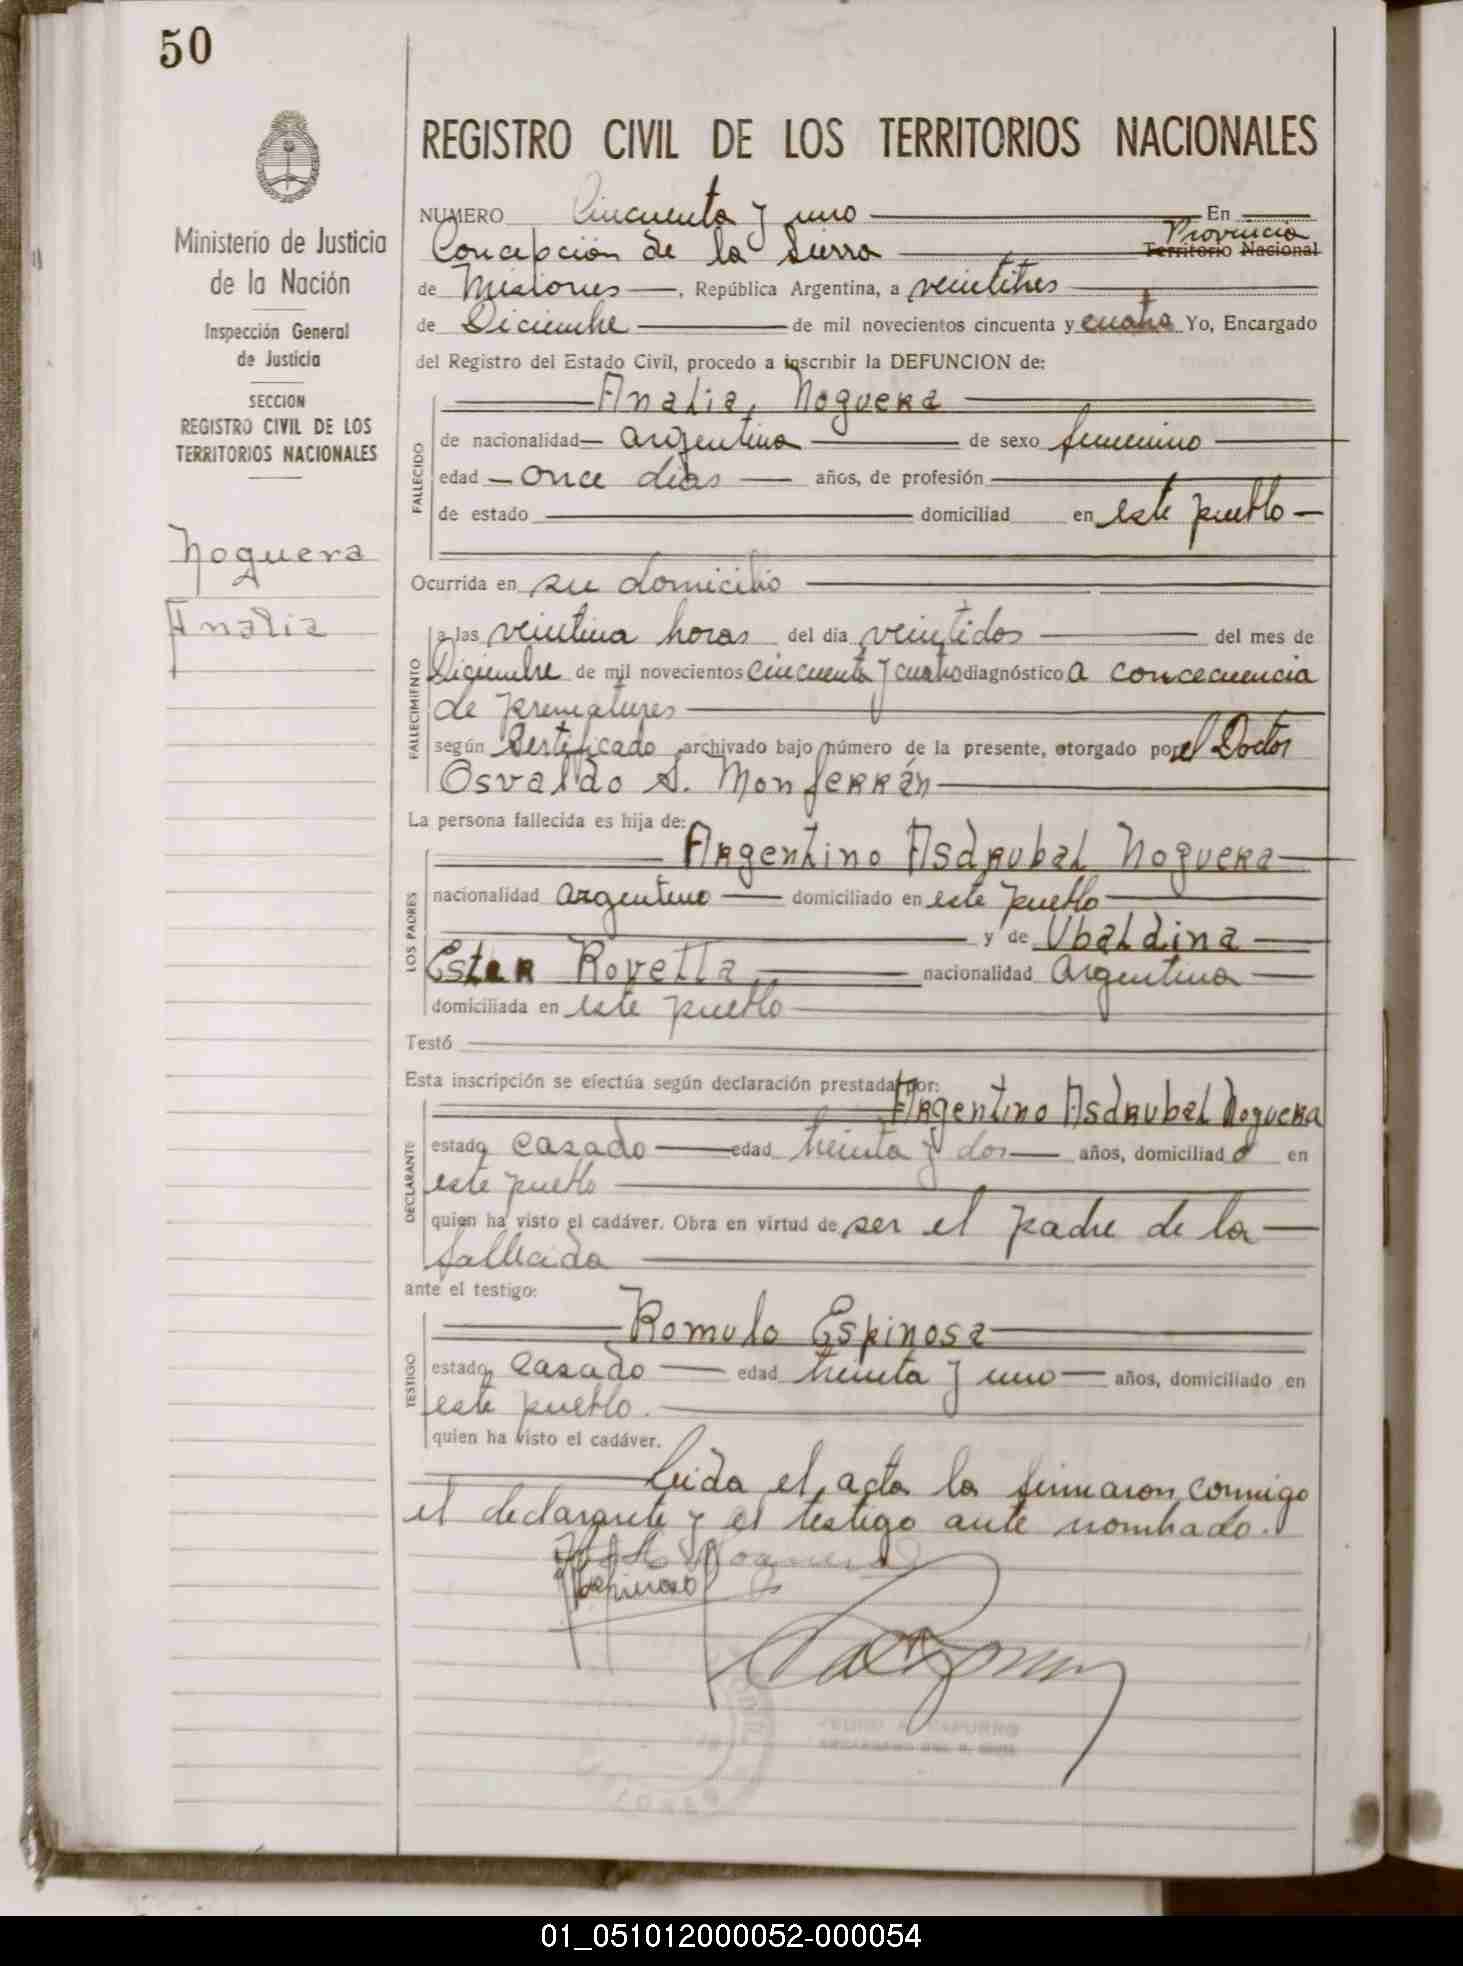 50
REGISTRO CIVIL DE LOS TERRITORIOS NACIONALES
Ministerio de Justicia
de la Nación
Inspección General
de Justicia
SECCION
REGISTRO CIVIL DE LOS
TERRITORIOS NACIONALES
Noguera
Analia
NUMERO Cincuenta y uno En
Concepción de la Sierra Provincia Territorio Nacional
de Misiones, República Argentina, a veintitres
de Diciembre de mil novecientos cincuenta y cuatro Yo, Encargado
del Registro del Estado Civil, procedo a inscribir la DEFUNCION de:
FALLECIDO
Analia, Noguera
de nacionalidad argentina de sexo femenino
edad once dias años, de profesión
de estado domiciliad en este pueblo
Ocurrida en su domicilio
FALLECIMIENTO
a las veintiuna horas del dia veintidos del mes de
Diciembre de mil novecientos cincuenta y cuatro diagnóstico a concecuencia
de prematures
según Sertificado archivado bajo número de la presente, otorgado por el Doctor
Osvaldo S. Monferrán
La persona fallecida es hija de:
LOS PADRES
Argentino Asdrubal Noguera
nacionalidad argentino domiciliado en este pueblo
y de Ubaldina
Ester Rovella nacionalidad Argentina
domiciliada en este pueblo
Testó
Esta inscripción se efectúa según declaración prestada por:
DECLARANTE
Argentino Asdrubal Noguera
estado casado edad treinta y dos años, domiciliado en
este pueblo
quien ha visto el cadáver. Obra en virtud de ser el padre de la
fallecida
ante el testigo:
TESTIGO
Romulo Espinosa
estado casado edad treinta y uno años, domiciliado en
este pueblo.
quien ha visto el cadáver.
Leida el acta la firmaron conmigo
el declarante y el testigo ante nombrado.
Noguera
Espinosa
01_051012000052-000054